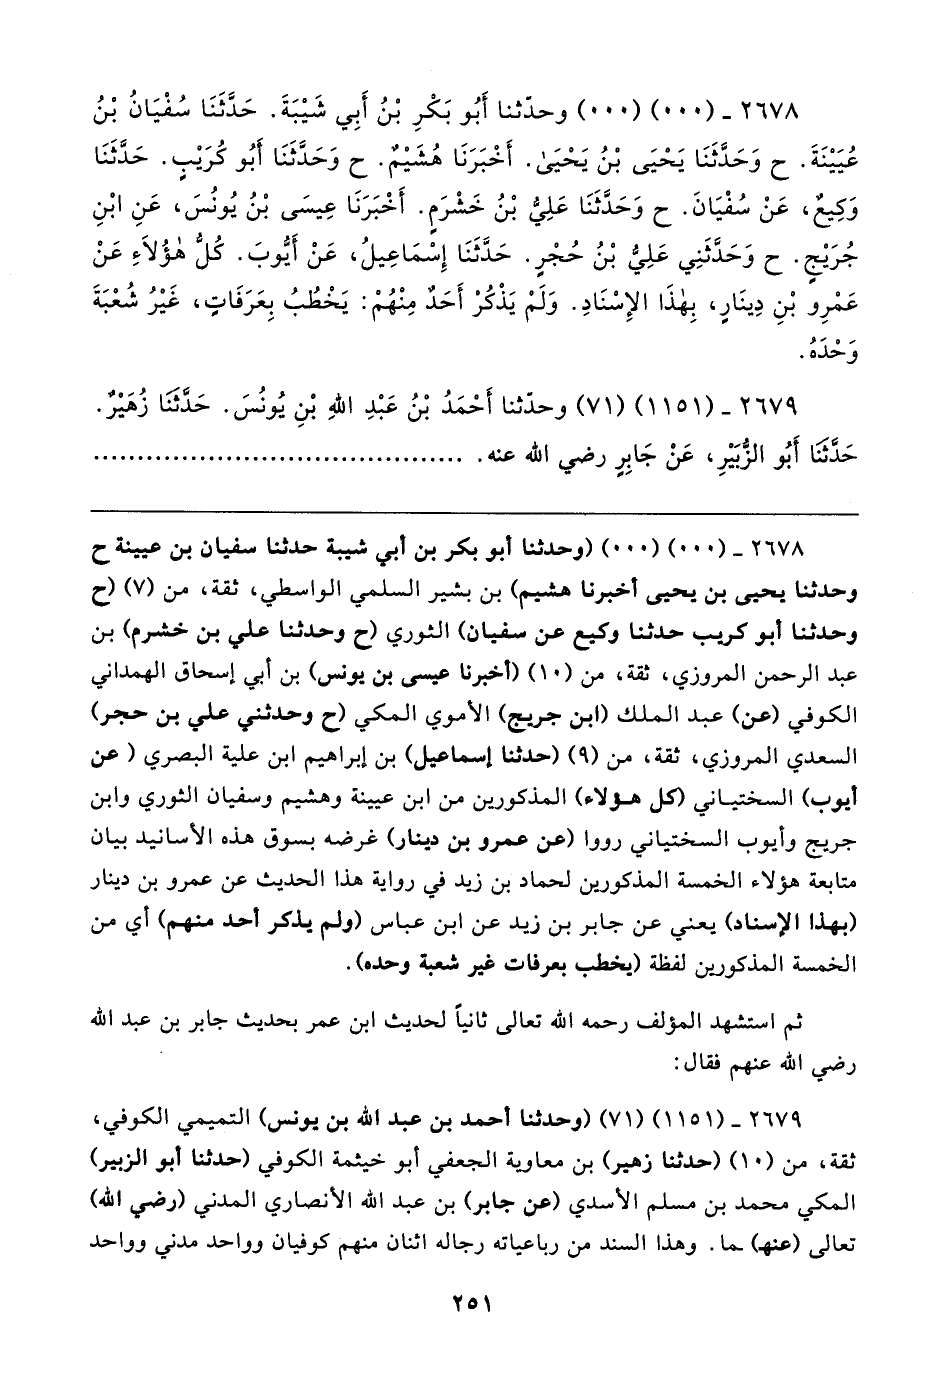 ٢٦٧٨ ـ (٠٠٠) (٠٠٠) وحدّثنا أَبُو بَكْرِ بْنُ أَبِي شَيْبَةَ. حَدَّثَنَا سُفْيَانُ بْنُ
عُيَيْنَةَ. ح وَحَدَّثَنَا يَحْيَى بْنُ يَحْيَىٰ. أَخْبَرَنَا هُشَيْمٌ. ح وَحَدَّثَنَا أَبُو كُرَيْبٍ. حَدَّثَنَا
وَكِيعٌ، عَنْ سُفْيَانَ. ح وَحَدَّثَنَا عَلِيُّ بْنُ خَشْرَمٍ. أَخْبَرَنَا عِيسَى بْنُ يُونُسَ، عَنِ ابْنِ
جُرَيْجٍ. ح وَحَدَّثَنِي عَلِيُّ بْنُ حُجْرٍ. حَدَّثَنَا إِسْمَاعِيلُ، عَنْ أَيُّوبَ. كُلُّ هٰؤُلاَءِ عَنْ
عَمْرِو بْنِ دِينَارٍ، بِهٰذَا الإِسْنَادِ. وَلَمْ يَذْكُرْ أَحَدٌ مِنْهُمْ: يَخْطُبُ بِعَرَفَاتٍ، غَيْرُ شُعْبَةَ
وَحْدَهُ.
٢٦٧٩ ـ (١١٥١) (٧١) وحدّثنا أَحْمَدُ بْنُ عَبْدِ اللهِ بْنِ يُونُسَ. حَدَّثَنَا زُهَيْرٌ.
حَدَّثَنَا أَبُو الزُّبَيْرِ، عَنْ جَابِرٍ رضي الله عنه. ........................................
٢٦٧٨ ـ (٠٠٠) (٠٠٠) (وحدثنا أبو بكر بن أبي شيبة حدثنا سفيان بن عيينة ح
وحدثنا يحيى بن يحيى أخبرنا هشيم) بن بشير السلمي الواسطي، ثقة، من (٧) (ح
وحدثنا أبو كريب حدثنا وكيع عن سفيان) الثوري (ح وحدثنا علي بن خشرم) بن
عبد الرحمن المروزي، ثقة، من (١٠) (أخبرنا عيسى بن يونس) بن أبي إسحاق الهمداني
الكوفي (عن) عبد الملك (ابن جريج) الأموي المكي (ح وحدثني علي بن حجر)
السعدي المروزي، ثقة، من (٩) (حدثنا إسماعيل) بن إبراهيم ابن علية البصري ( عن
أيوب) السختياني (كل هؤلاء) المذكورين من ابن عيينة وهشيم وسفيان الثوري وابن
جريج وأيوب السختياني رووا (عن عمرو بن دينار) غرضه بسوق هذه الأسانيد بيان
متابعة هؤلاء الخمسة المذكورين لحماد بن زيد في رواية هذا الحديث عن عمرو بن دينار
(بهذا الإسناد) يعني عن جابر بن زيد عن ابن عباس (ولم يذكر أحد منهم) أي من
الخمسة المذكورين لفظة (يخطب بعرفات غير شعبة وحده).
ثم استشهد المؤلف رحمه الله تعالى ثانياً لحديث ابن عمر بحديث جابر بن عبد الله
رضي الله عنهم فقال:
٢٦٧٩ ـ (١١٥١) (٧١) (وحدثنا أحمد بن عبد الله بن يونس) التميمي الكوفي،
ثقة، من (١٠) (حدثنا زهير) بن معاوية الجعفي أبو خيثمة الكوفي (حدثنا أبو الزبير)
المكي محمد بن مسلم الأسدي (عن جابر) بن عبد الله الأنصاري المدني (رضي الله)
تعالى (عنهـ) ـما. وهذا السند من رباعياته رجاله اثنان منهم كوفيان وواحد مدني وواحد
٢٥١